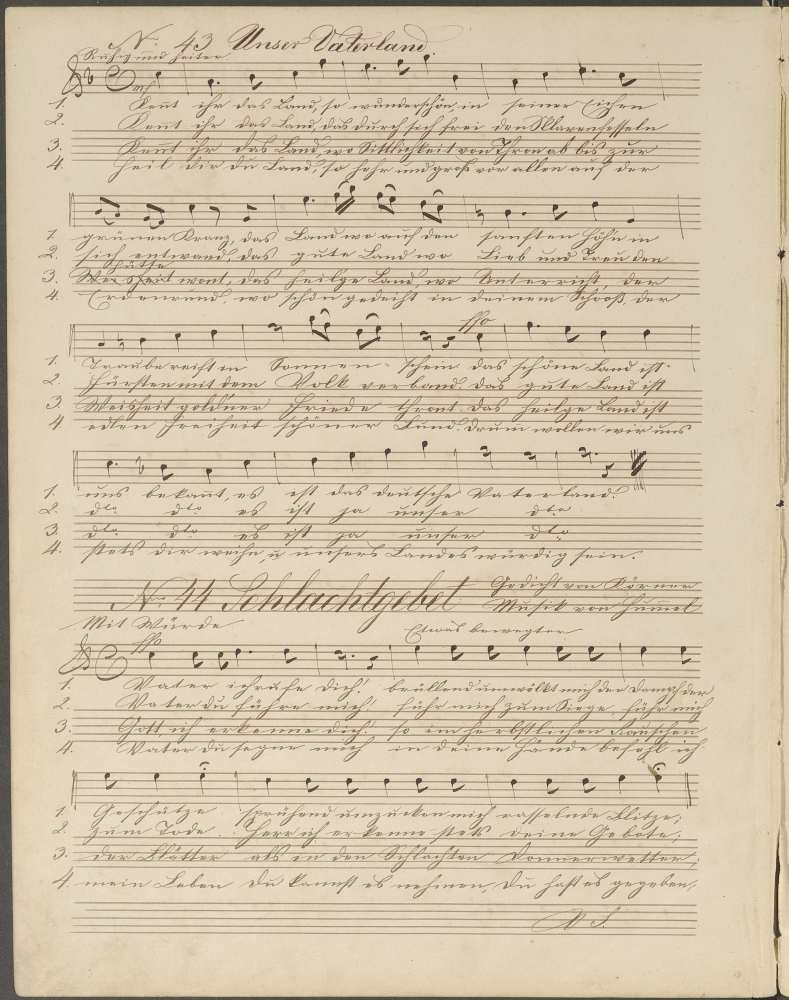 Nº. 43 Unser Vaterland.
Ruhig und heiter
mf
1. Kennt ihr das Land, so wunderschön in seiner Eichen
2. Kennt ihr das Land, das durch sich frei den Sklavenfesseln
3. Kennt ihr das Land, wo Sittlichkeit von Thron ab bis zur
4. Heil dir du Land, so hehr und groß vor allen auf der
1. grünen Kranz, das Land wo auf den sanften Höh'n in
2. sich entwand, das gute Land wo Lieb und Treu den
3. wont, das heilge Land, wo Unterricht, der
4. Erdenrund, wo schön gedeiht in deinem Schooß, der
ffo
1. Traube reift in Sonnen-schein das schöne Land ist
2. Fürsten mit dem Volk verband. das gute Land ist
3. Weisheit goldner Friede thront. Das heilge Land ist
4 edlen Freiheit schöner Bund. Drum wollen wir uns
1. uns bekannt, es ist das deutsche Vaterland.
2. dto dto es ist ja unser dto
3. dto dto es ist ja unser dto
4. stets dir weihn, u unsers Landes würdig sein.
No. 44 Schlachtgebet Gedicht von Körner
Musik von Himmel
Mit Würde Etwas bewegter
ffo
1. Vater ich rufe Dich! brüllend umwölkt mich der Dampf der
2. Vater du führe mich! führ mich zum Siege, führ mich
3. Gott, ich erkenne dich! so im herbstlichen Rauschen
4. Vater du segne mich in deine Hände befehl ich
1 Geschütze sprühend umzucken mich rasselnde Blitze;
2. zum Tode. Herr ich erkenne stets deine Gebote;
3. der Blätter als in den Schlachten Donnerwetter;
4. mein Leben Du kannst es nehmen, Du hast es gegeben,